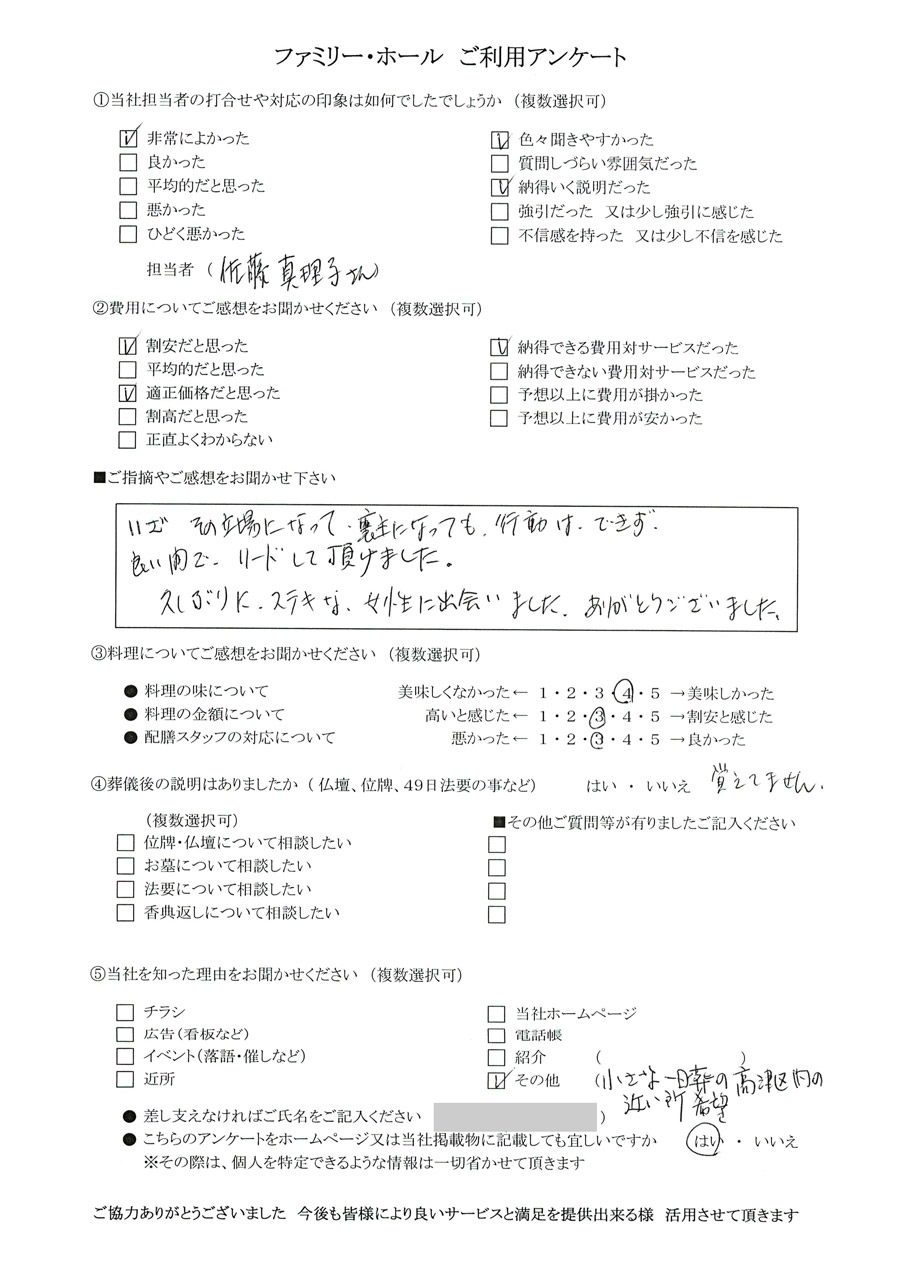 ファミリー・ホール　ご利用アンケート
①当社担当者の打合せや対応の印象は如何でしたでしょうか （複数選択可）
非常によかった　色々聞きやすかった
良かった　質問しづらい雰囲気だった
平均的だと思った　納得いく説明だった
悪かった　強引だった　又は少し強引に感じた
ひどく悪かった　不信感を持った　又は少し不信を感じた
担当者 （ 佐藤 真理子さん）
②費用についてご感想をお聞かせください （複数選択可）
割安だと思った　納得できる費用対サービスだった
平均的だと思った　納得できない費用対サービスだった
適正価格だと思った　予想以上に費用が掛かった
割高だと思った　予想以上に費用が安かった
正直よくわからない
■ご指摘やご感想をお聞かせ下さい
いざ その立場になって、喪主になっても、行動は、できず、
良い間で、リードして頂けました。
久しぶりに、ステキな、女性に出会いました、ありがとうございました。
③料理についてご感想をお聞かせください （複数選択可）
● 料理の味について　美味しくなかった← 1・2・3・4・5 →美味しかった
● 料理の金額について　高いと感じた← 1・2・3・4・5 →割安と感じた
● 配膳スタッフの対応について　悪かった← 1・2・3・4・5 →良かった
④葬儀後の説明はありましたか （ 仏壇、位牌、49日法要の事など）　はい ・ いいえ　覚えてません、
（複数選択可）　■その他ご質問等が有りましたご記入ください
位牌・仏壇について相談したい
お墓について相談したい
法要について相談したい
香典返しについて相談したい
⑤当社を知った理由をお聞かせください （複数選択可）
チラシ　当社ホームページ
広告（看板など）　電話帳
イベント（落語・催しなど）　紹介 （　）
近所　その他 （小さな一日葬の高津区内の
近い所 希望
● 差し支えなければご氏名をご記入ください　）
● こちらのアンケートをホームページ又は当社掲載物に記載しても宜しいですか　はい ・ いいえ
※その際は、個人を特定できるような情報は一切省かせて頂きます
ご協力ありがとうございました　今後も皆様により良いサービスと満足を提供出来る様　活用させて頂きます